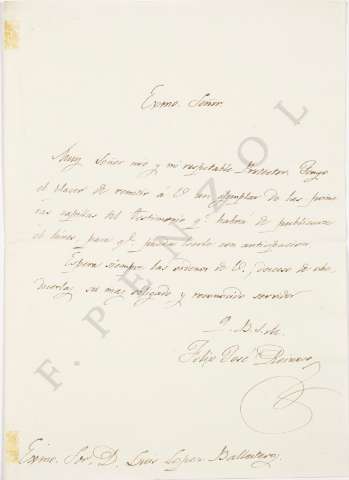 Exmo. Señor
Muy Señor mio y mi respetable Protector. Tengo
el placer de remitir á V. un ejemplar de las prime
ras copias del testimonio q.e habrá de publicarse
el lunes, para q.e pueda leerlo con anticipacion
Espera siempre las ordenes de V., deseoso de obe
decerlas, su mas obligado y reconocido servidor
Q. B. S. M.
Felix José Reinoso
Exmo. Sor. D. Luis Lopez Ballesteros.
F. PENZOL